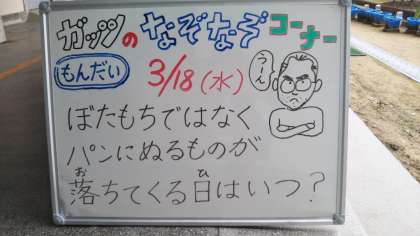 ガッツのなぞなぞコーナー
もんだい 3/18(水)
うーん
ぼたもちではなく
パンにぬるものが
落ちてくる日はいつ?
お ひ